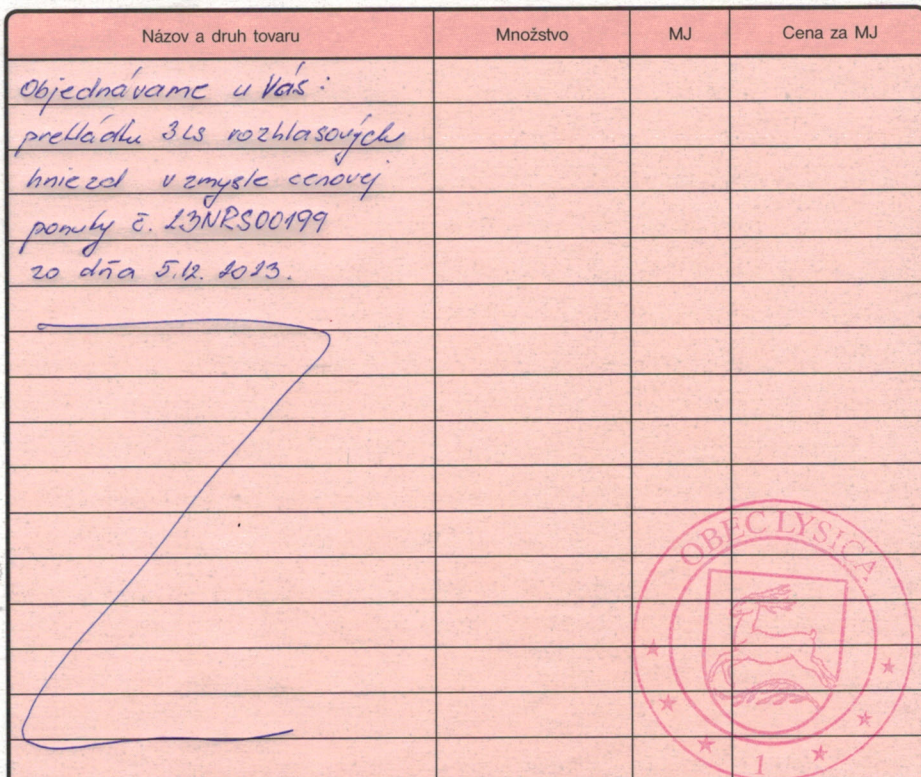 Názov a druh tovaru Množstvo MJ Cena za MJ
Objednávame u Vás:
prekládku 3 ks rozhlasových
hniezd v zmysle cenovej
ponuky č. 23NRS00199
zo dňa 5.12. 2023.
OBEC LYSICA
1